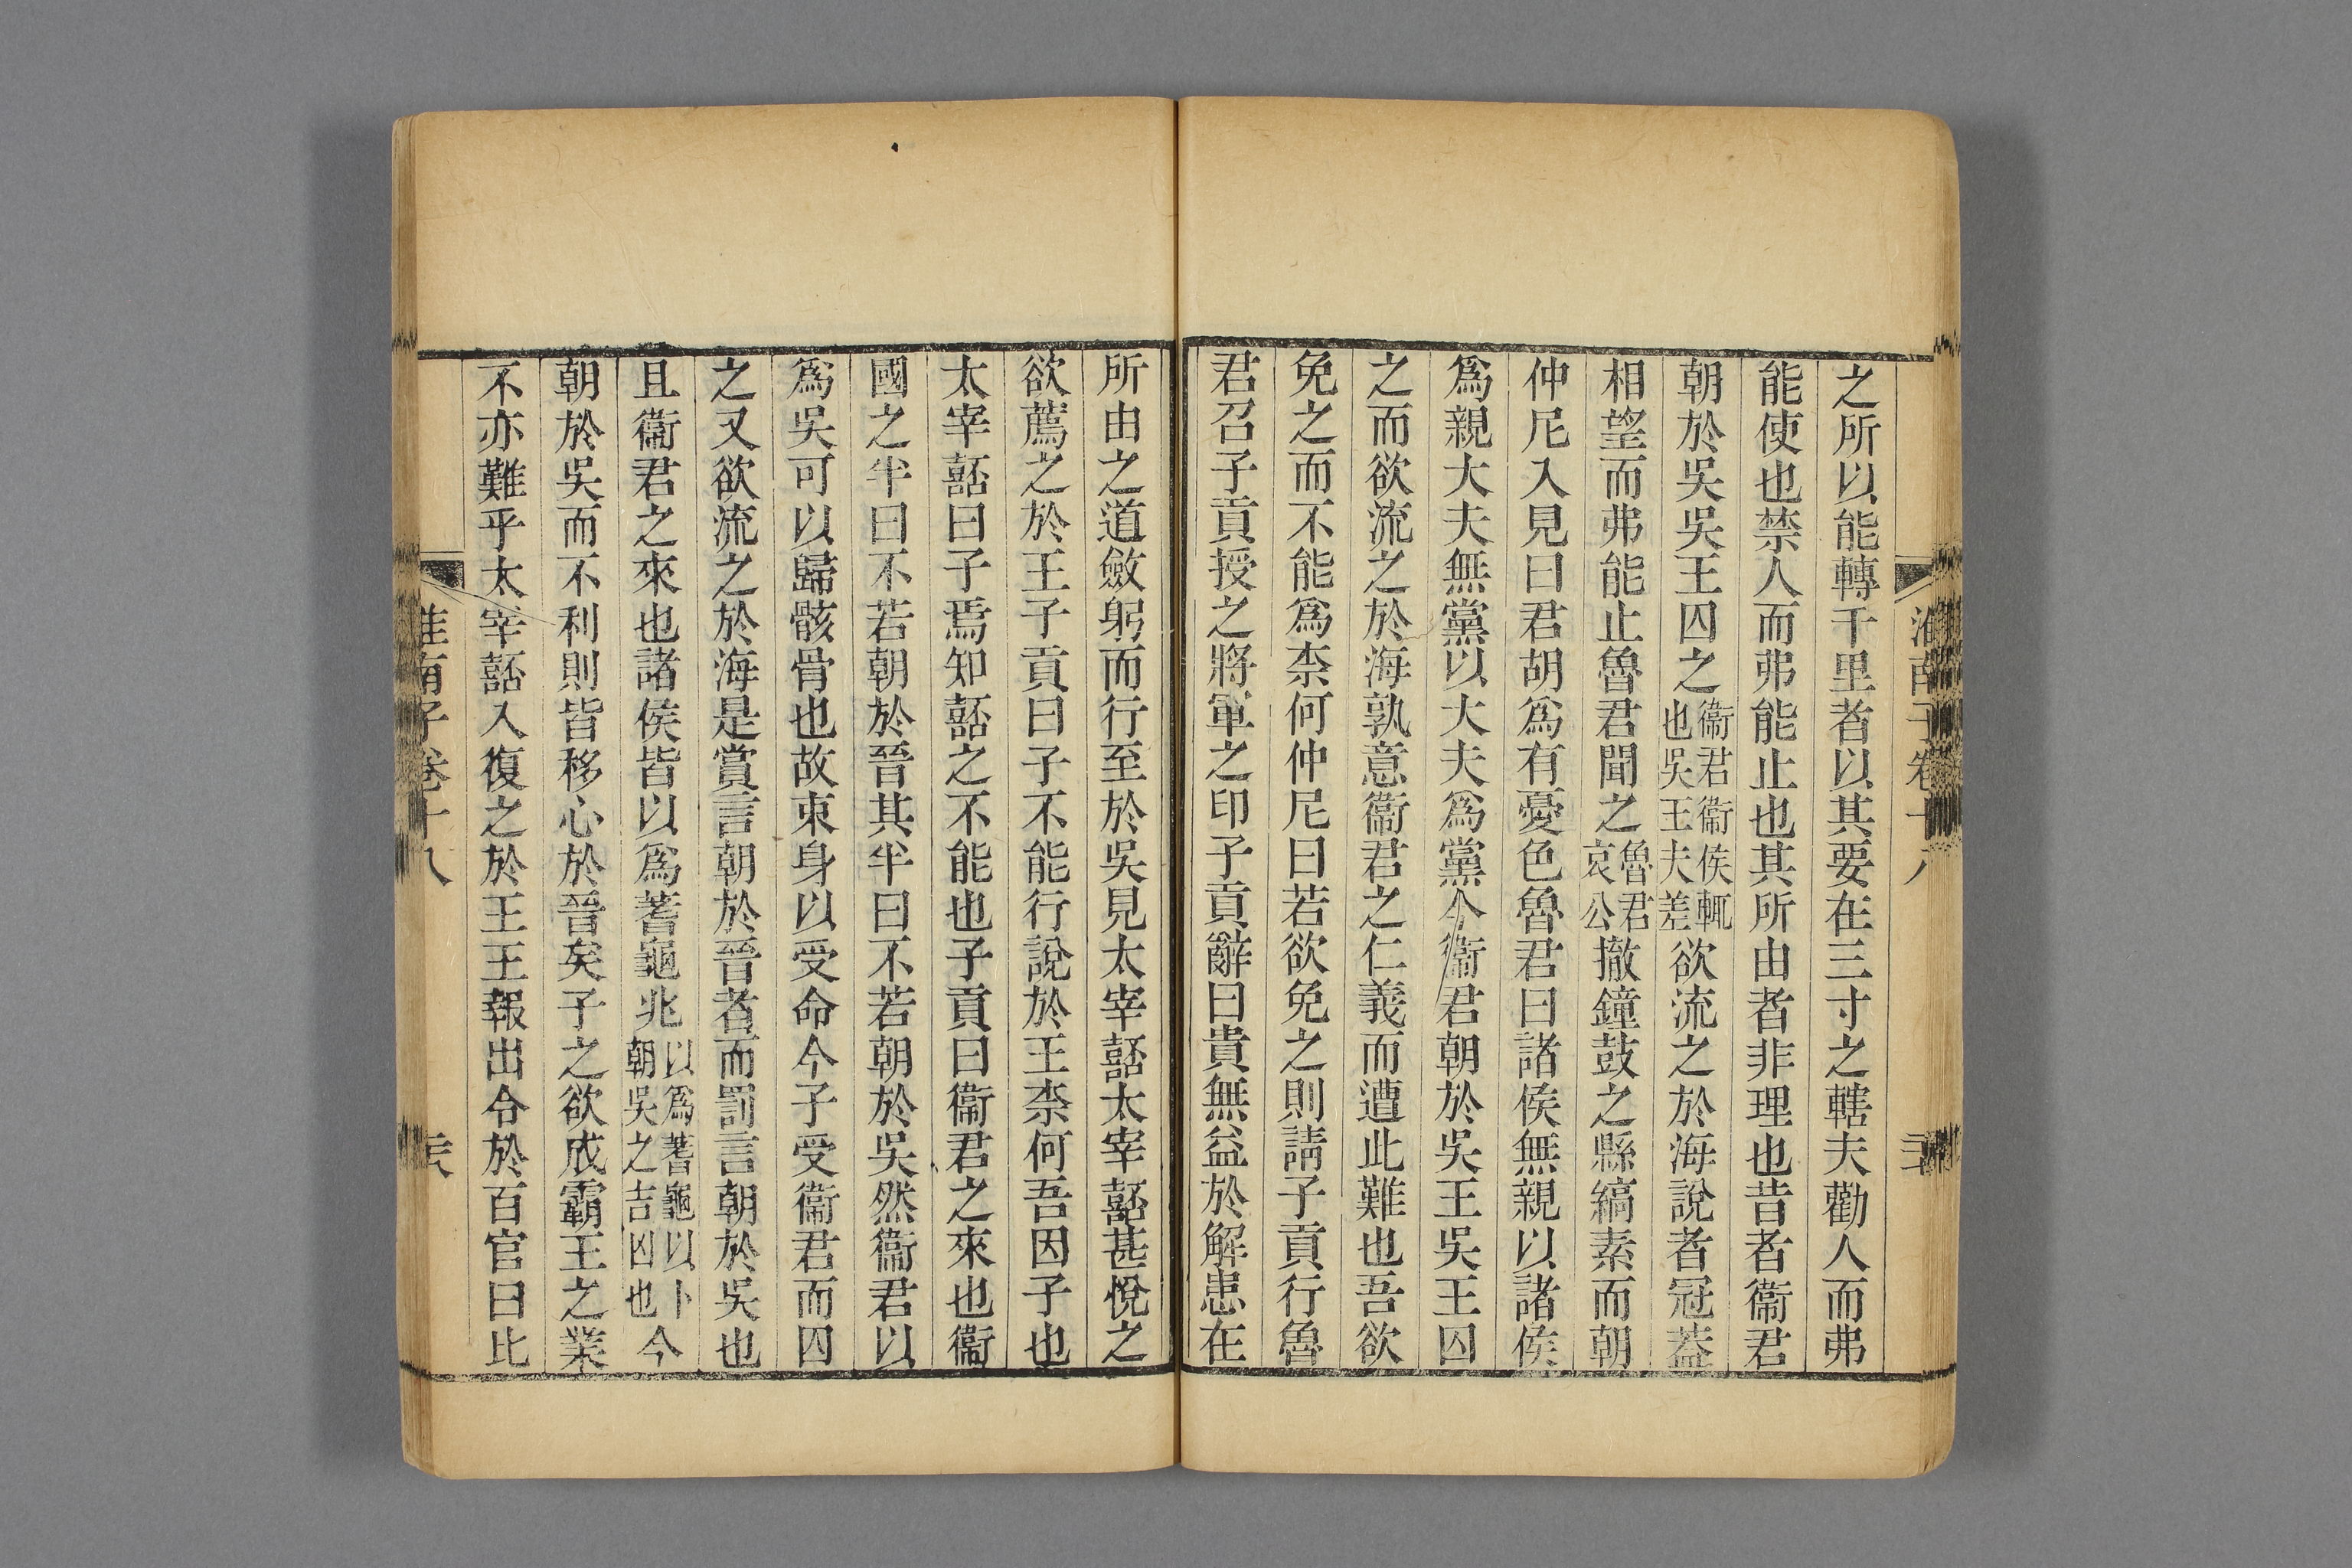 之所以能轉千里者以其要在三寸之轄夫勸人而弗
能使也禁人而弗能止也其所由者非理也昔者衞君
朝於吳吳王囚之衞君衞侯輒也吳王夫差欲流之於海說者冠蓋
相望而弗能止魯君聞之魯君哀公撤鐘鼓之縣縞素而朝
仲尼入見曰君胡爲有憂色魯君曰諸侯無親以諸侯
爲親大夫無黨以大夫爲黨今衞君朝於吳王吳王囚
之而欲流之於海孰意衞君之仁義而遭此難也吾欲
免之而不能爲柰何仲尼曰若欲免之則請子貢行魯
君召子貢授之將軍之印子貢辭曰貴無益於解患在
所由之道斂躬而行至於吳見太宰嚭太宰嚭甚悅之
欲薦之於王子貢曰子不能行說於王柰何吾因子也
太宰嚭曰子焉知嚭之不能也子貢曰衞君之來也衞
國之半曰不若朝於晉其半曰不若朝於吳然衞君以
爲吳可以歸骸骨也故束身以受命今子受衞君而囚
之又欲流之於海是賞言朝於晉者而罰言朝於吳也
且衞君之來也諸侯皆以爲蓍龜兆以爲蓍龜以卜朝吳之吉凶也今
朝於吳而不利則皆移心於晉矣子之欲成霸王之業
不亦難乎太宰嚭入復之於王王報出令於百官曰比
淮南子卷十八